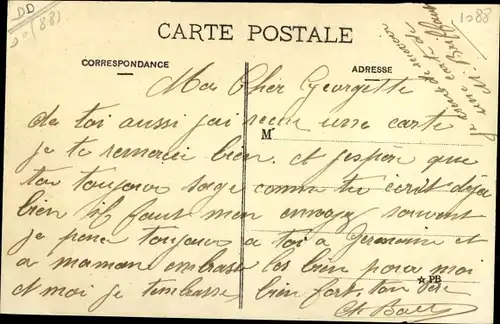 DD
(88)
1088
CARTE POSTALE
CORRESPONDANCE
ADRESSE
Ma Cher Georgette
de toi aussi jai recue une carte
M
je te remerci bien et jespère que
tu toujours sage comme tu écrit déja
bien il faut men envoyé souvent
je pense toujours a toi a Germaine et
a maman embrasse les bien pour moi
★ PB
et moi je tembrasse bien fort. ton père
une carte de